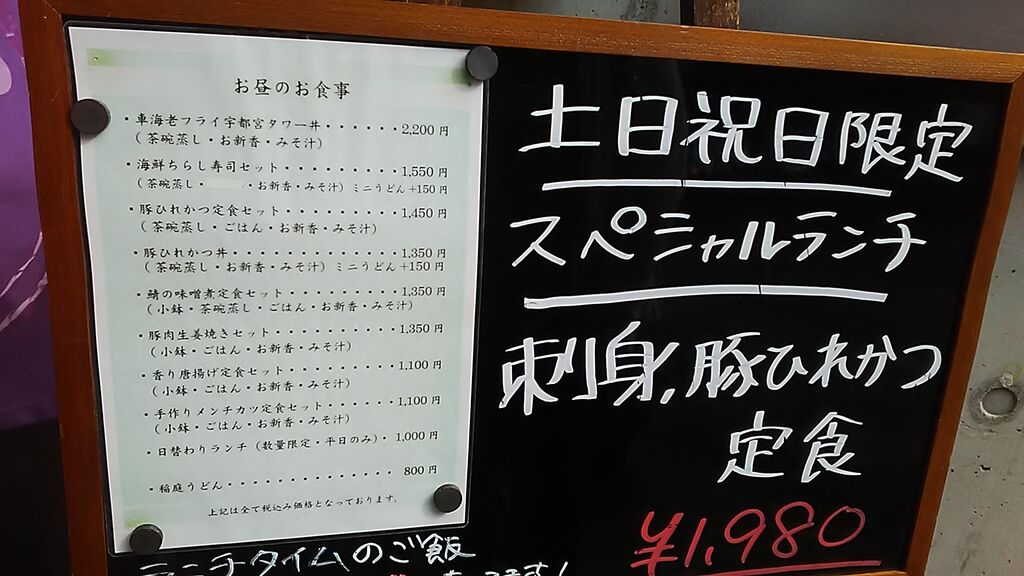 お昼のお食事
・車海老フライ宇都宮タワー丼・・・・・・・2,200円
(茶碗蒸し・お新香・みそ汁)
・海鮮ちらし寿司セット・・・・・・・・・・1,550円
(茶碗蒸し・ ・お新香・みそ汁) ミニうどん+150円
・豚ひれかつ定食セット・・・・・・・・・・1,450円
(茶碗蒸し・ごはん・お新香・みそ汁)
・豚ひれかつ丼・・・・・・・・・・・・・・1,350円
(茶碗蒸し・お新香・みそ汁) ミニうどん+150円
・鯖の味噌煮定食セット・・・・・・・・・・1,350円
(小鉢・茶碗蒸し・ごはん・お新香・みそ汁)
・豚肉生姜焼きセット・・・・・・・・・・・1,350円
(小鉢・ごはん・お新香・みそ汁)
・香り唐揚げ定食セット・・・・・・・・・・1,100円
(小鉢・ごはん・お新香・みそ汁)
・手作りメンチカツ定食セット・・・・・・・1,100円
(小鉢・ごはん・お新香・みそ汁)
・日替わりランチ(数量限定・平日のみ)・1,000円
・稲庭うどん・・・・・・・・・・・・・・・800円
上記は全て税込み価格となっております。
土日祝日限定
スペシャルランチ
刺身,豚ひれかつ
定食
¥1,980
ランチタイムのご飯